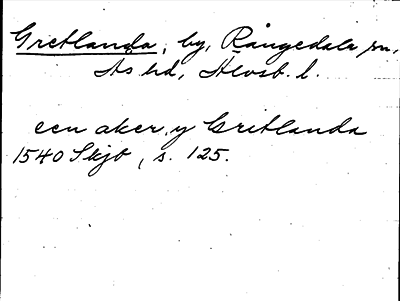 Gretlanda, by, Rångedala sn,
Ås hd, Älvsb. l.
een aker, y Gritlanda
1540 Skjb, s. 125.